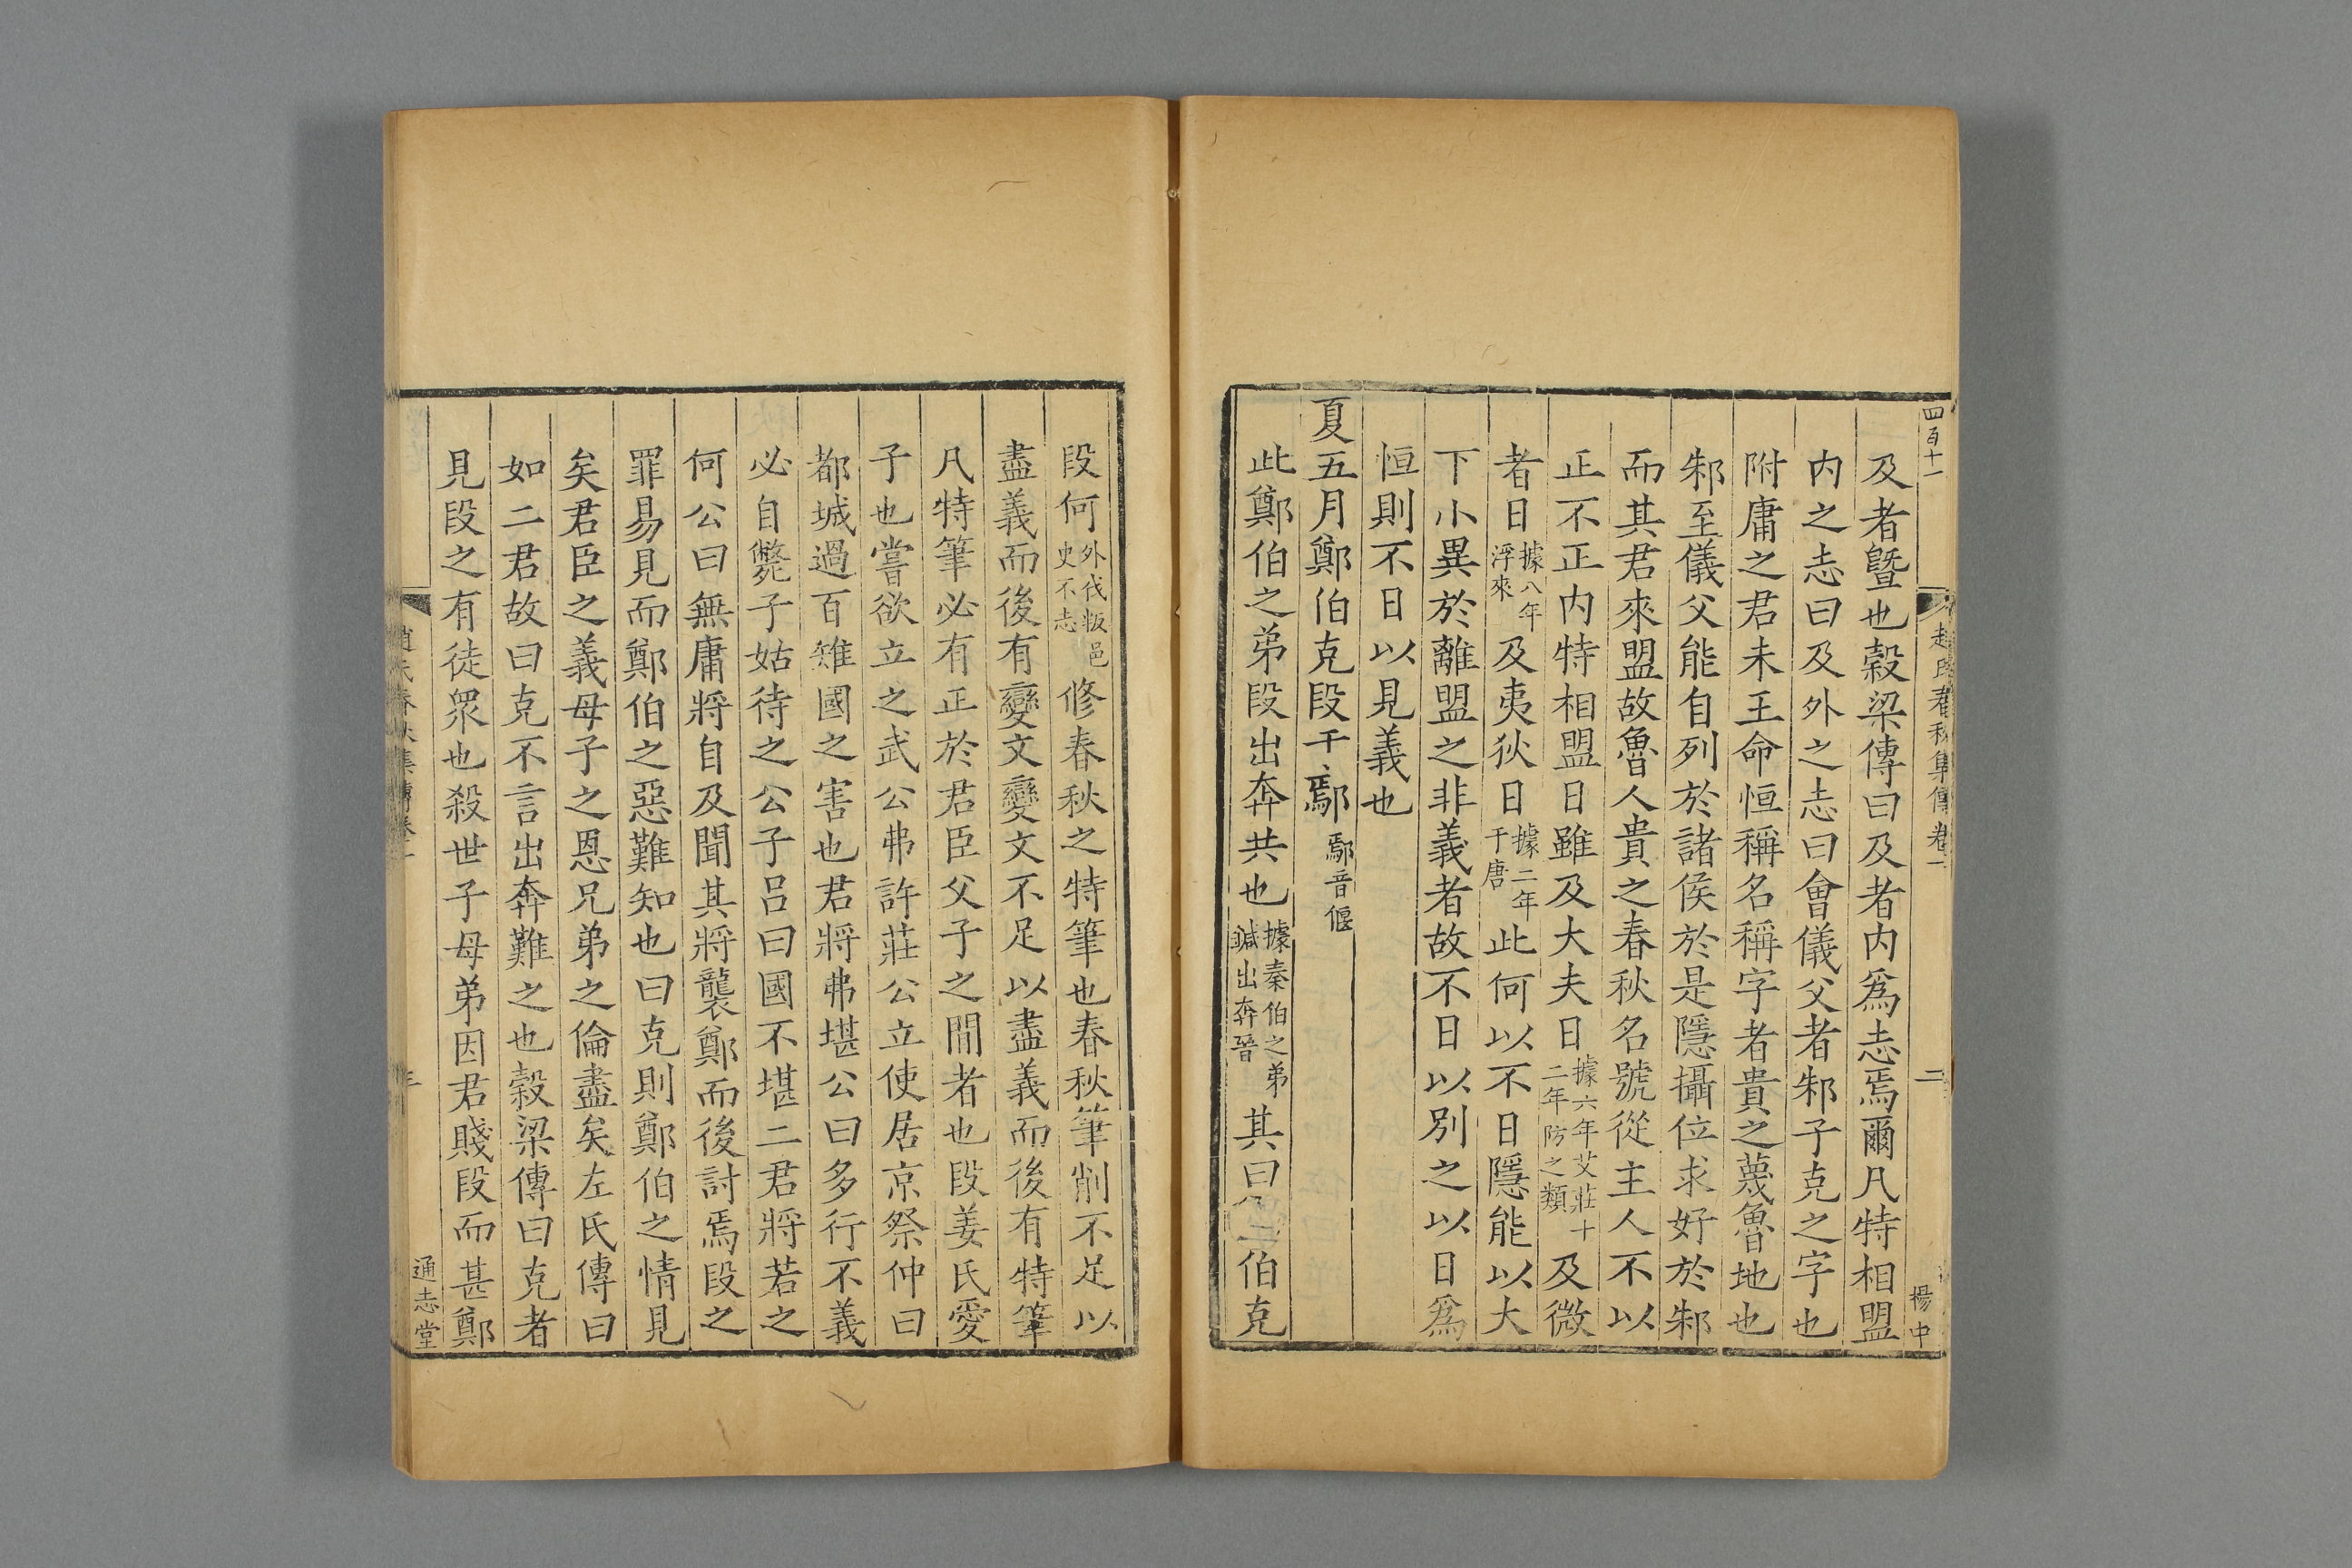 四百十一
趙氏春秋集傳卷一
二
楊中
及者曁也穀梁傳曰及者内爲志焉爾凡特相盟
内之志曰及外之志曰會儀父者邾子克之字也
附庸之君未王命恒稱名稱字者貴之蔑魯地也
邾至儀父能自列於諸侯於是隱攝位求好於邾
而其君來盟故魯人貴之春秋名號從主人不以
正不正内特相盟日雖及大夫日據六年艾莊十二年防之類及微
者日據八年浮來及夷狄日據二年于唐此何以不日隱能以大
下小異於離盟之非義者故不日以別之以日爲
恒則不日以見義也
夏五月鄭伯克段于鄢鄢音偃
此鄭伯之弟段出奔共也據秦伯之弟鍼出奔晉其曰伯克
段何外伐叛邑史不志修春秋之特筆也春秋筆削不足以
盡義而後有變文變文不足以盡義而後有特筆
凡特筆必有正於君臣父子之間者也段姜氏愛
子也嘗欲立之武公弗許莊公立使居京祭仲曰
都城過百雉國之害也君將弗堪公曰多行不義
必自斃子姑待之公子呂曰國不堪二君將若之
何公曰無庸將自及聞其將襲鄭而後討焉段之
罪易見而鄭伯之惡難知也曰克則鄭伯之情見
矣君臣之義母子之恩兄弟之倫盡矣左氏傳曰
如二君故曰克不言出奔難之也穀梁傳曰克者
見段之有徒衆也殺世子母弟因君賤段而甚鄭
趙氏春秋集傳卷一
三
通志堂